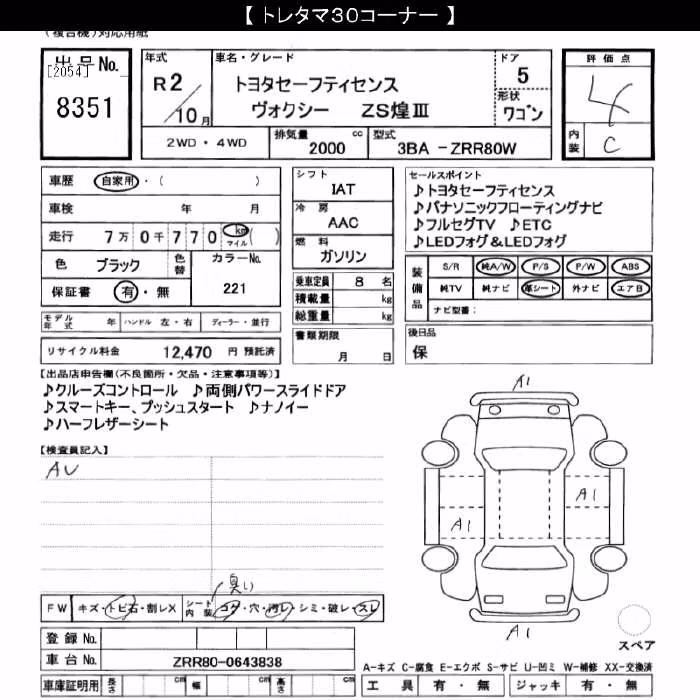 【 トレタマ３０コーナー 】
(複合機)対応用紙
出品 No.
[2054]
8351
年式
R 2
10 月
車名・グレード
トヨタセーフティセンス
ヴォクシー ZS煌Ⅲ
ドア
5
形状
ワゴン
評価点
4
内装
C
2WD ・ 4WD
排気量 cc
2000
型式
3BA - ZRR80W
車歴 自家用・( )
車検 年 月
走行 7万0千770 km マイル ( )
色 ブラック 色替 カラーNo.
保証書 有・無 221
モデル年式 年 ハンドル 左・右 ディーラー・並行
リサイクル料金 12,470 円 預託済
シフト
IAT
冷房
AAC
燃料
ガソリン
乗車定員 8 名
積載量 kg
総重量 kg
書類期限
月 日
セールスポイント
♪トヨタセーフティセンス
♪パナソニックフローティングナビ
♪フルセグTV ♪ETC
♪LEDフォグ＆LEDフォグ
装備品
S/R 純A/W P/S P/W ABS
純TV 純ナビ 革シート 外ナビ エアB
ナビ型番：
後日品
保
【出品店申告欄(不良箇所・欠品・注意事項等)】
♪クルーズコントロール ♪両側パワースライドドア
♪スマートキー、プッシュスタート ♪ナノイー
♪ハーフレザーシート
【検査員記入】
AU
A1
A1
A1
A1
スペア
(臭い)
FW キズ・トビ石・割レX シート内装 コゲ・穴・汚レ・シミ・破レ・スレ
登録 No.
車台 No. ZRR80-0643838
車庫証明用 長さ cm 幅 cm 高さ cm
A-キズ C-腐食 E-エクボ S-サビ U-凹ミ W-補修 XX-交換済
工具 有・無 ジャッキ 有・無